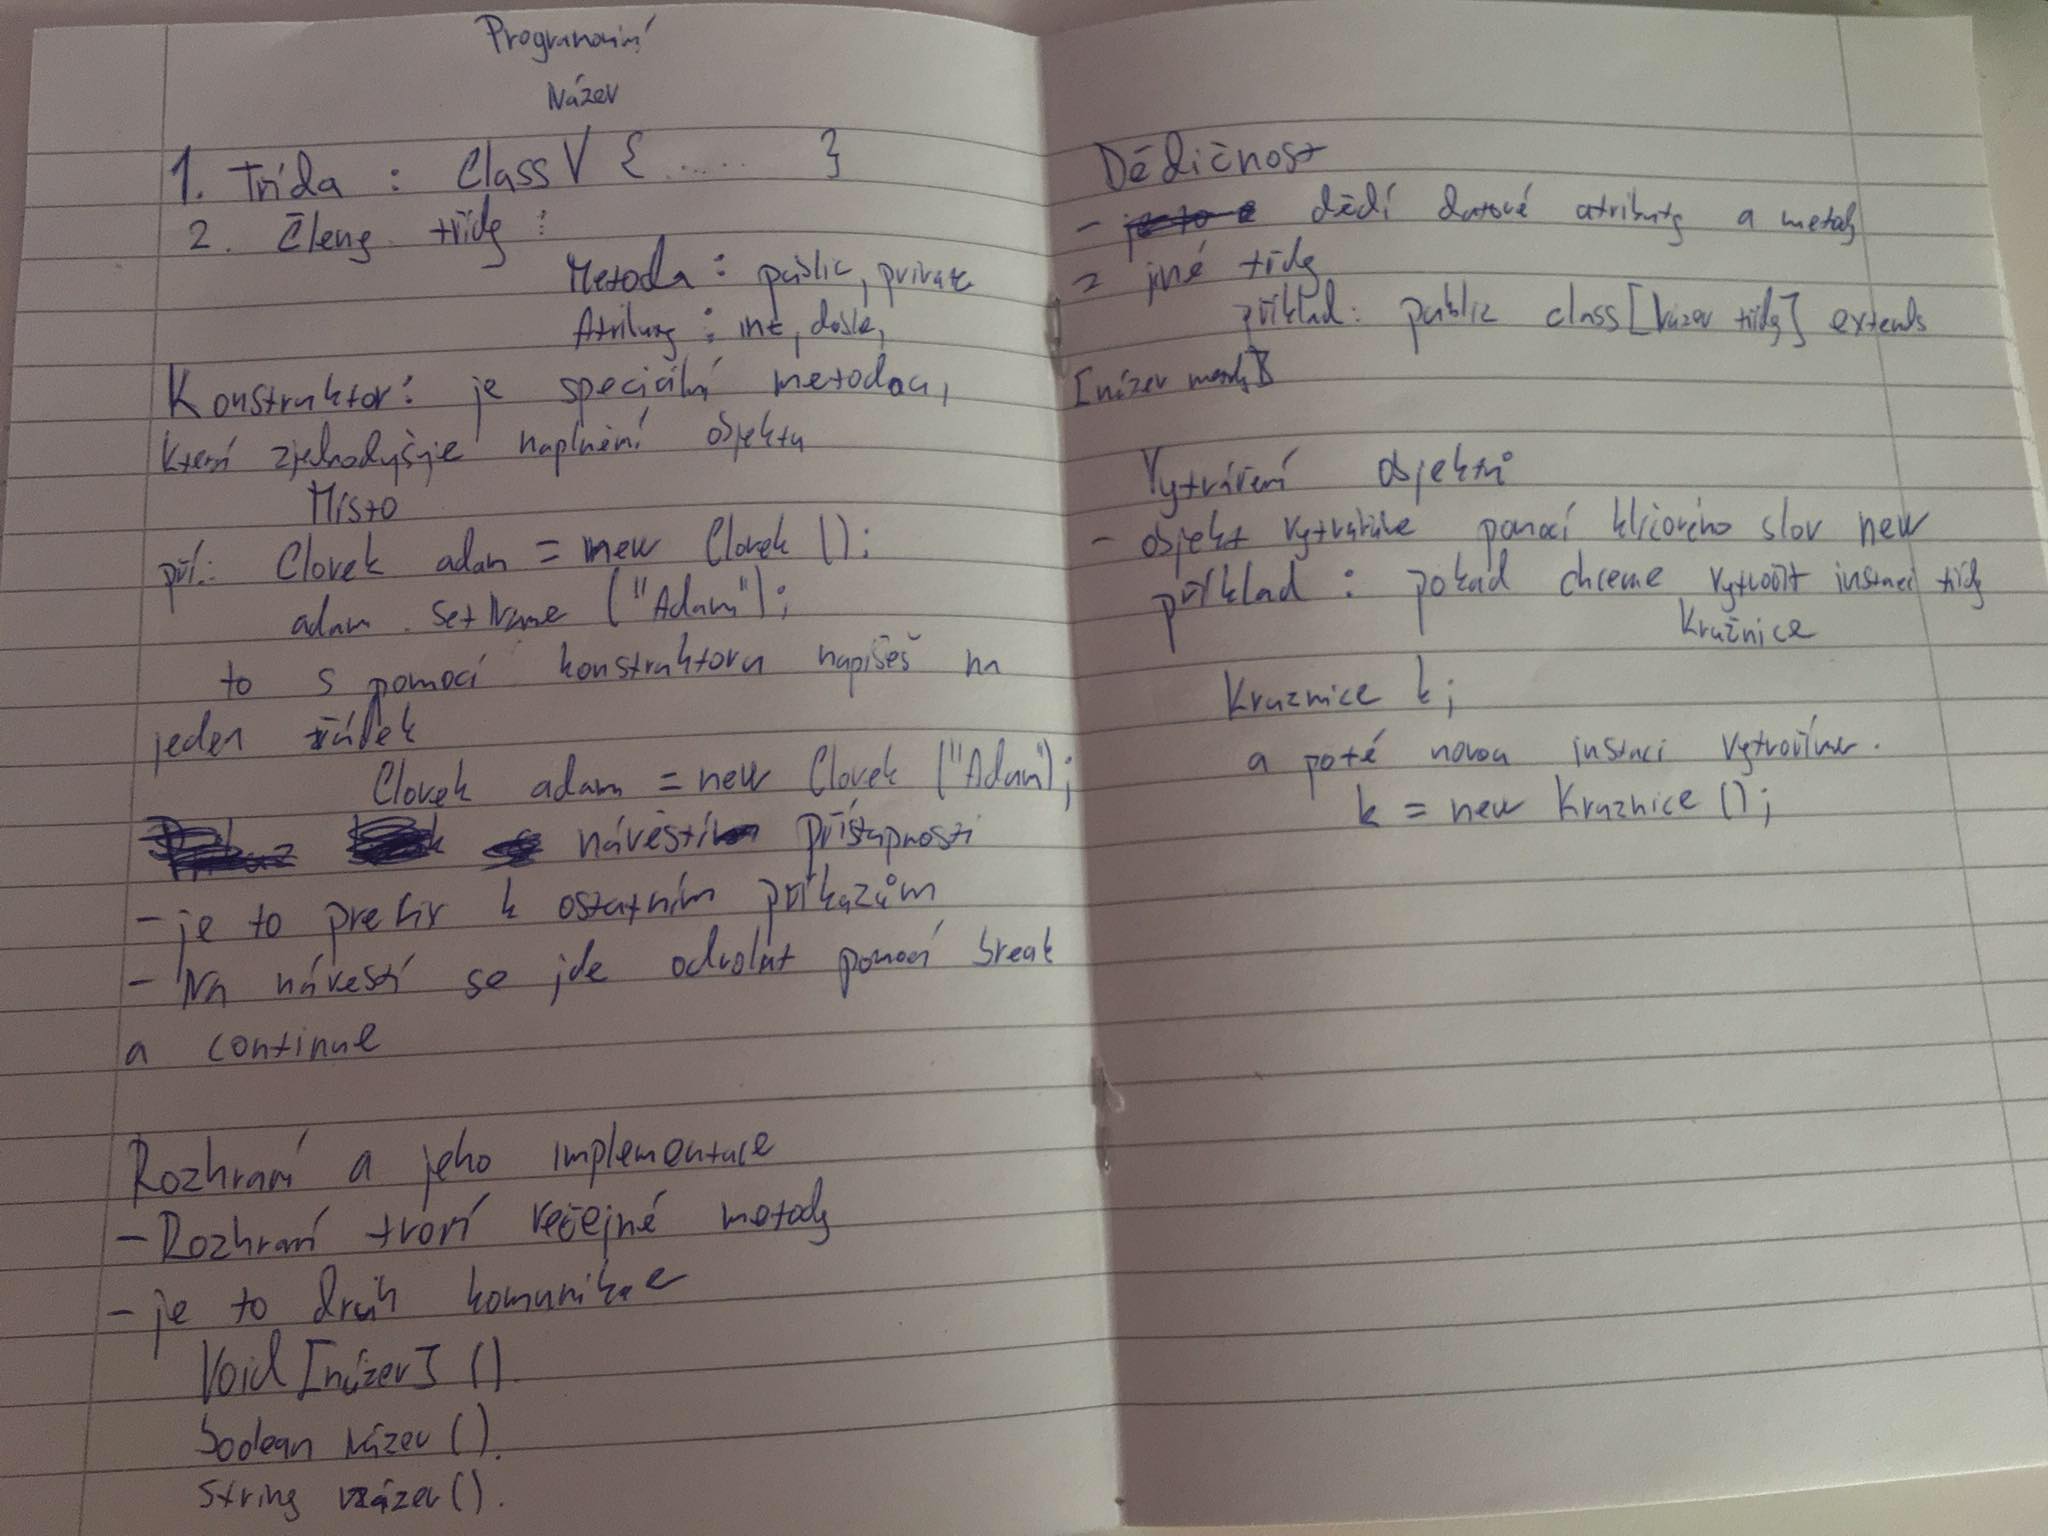 Programování
Název
1. Třída : Class V { ..... }
2. Členy třídy :
Metoda : public, private
Atributy : int, double,
Konstruktor: je speciální metodou,
která zjednodyšuje naplnění objektu
Místo
př.: Clovek adam = new Clovek ();
adam . SetName ("Adam");
to s pomocí konstruktoru napíšeš na
jeden řádek
Clovek adam = new Clovek ("Adam");
návěstí přístupnosti
- je to prefix k ostatním příkazům
- Na návěstí se jde odvolat pomocí break
a continue
Rozhraní a jeho implementace
- Rozhraní tvoří veřejné metody
- je to druh komunikace
Void [název] ().
boolean název ().
String název ().
Dědičnost
- dědí datové atributy a metody
z jiné třídy
příklad: public class [Název třídy] extends
[název]
Vytváření objektů
- objekt vytváříme pomocí klíčového slov new
příklad : pokud chceme vytvořit instaci třídy
Kružnice
Kruznice k;
a poté novou instaci vytvoříme.
k = new Kruznice ();